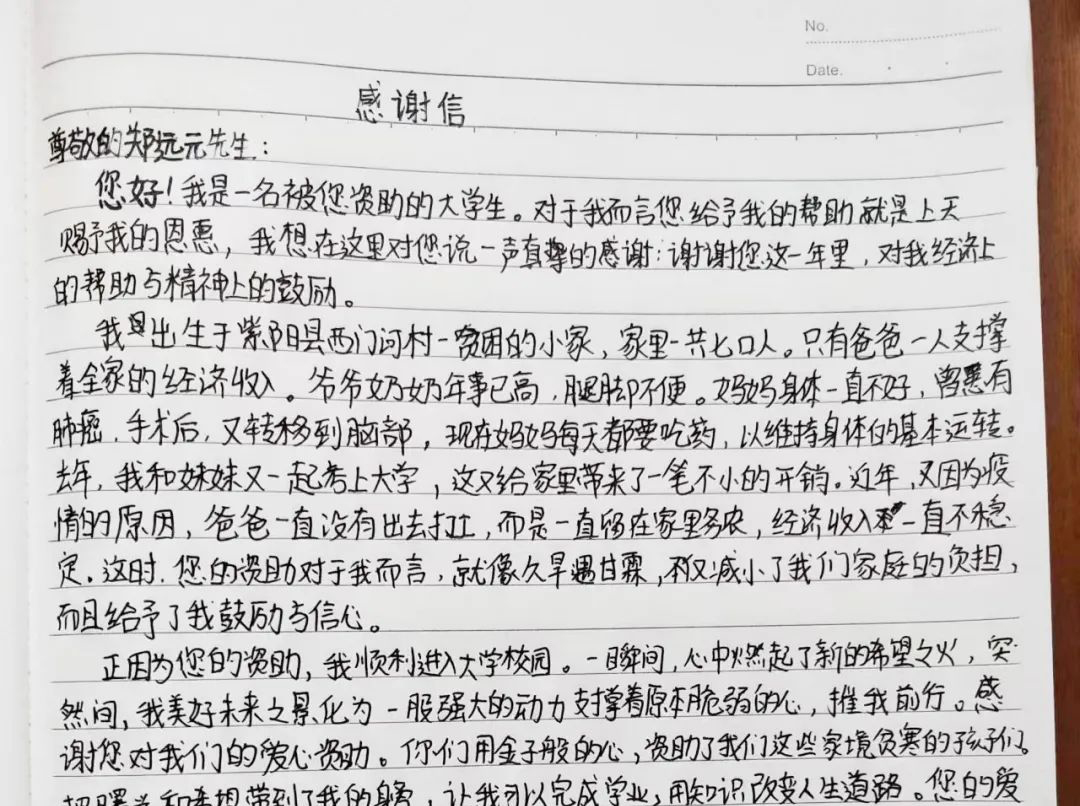 No.
Date.
感谢信
尊敬的郑远元先生：
您好！我是一名被您资助的大学生。对于我而言您给予我的帮助就是上天
赐予我的恩惠，我想在这里对您说一声真挚的感谢：谢谢您这一年里，对我经济上
的帮助与精神上的鼓励。
我是出生于紫阳县西门河村一贫困的小家，家里一共七口人。只有爸爸一人支撑
着全家的经济收入。爷爷奶奶年事已高，腿脚不便。妈妈身体一直不好，曾患有
肺癌，手术后，又转移到脑部，现在妈妈每天都要吃药，以维持身体的基本运转。
去年，我和妹妹又一起考上大学，这又给家里带来了一笔不小的开销。近年，又因为疫
情的原因，爸爸一直没有出去打工，而是一直留在家里务农，经济收入一直不稳
定。这时，您的资助对于我而言，就像久旱遇甘霖，不仅减小了我们家庭的负担，
而且给予了我鼓励与信心。
正因为您的资助，我顺利进入大学校园。一瞬间，心中燃起了新的希望之火，突
然间，我美好未来之景化为一股强大的动力支撑着原本脆弱的心，推我前行。感
谢您对我们的爱心资助。你们用金子般的心，资助了我们这些家境贫寒的孩子们。
和梦想带到了我的身旁，让我可以完成学业，用知识改变人生道路。您的爱